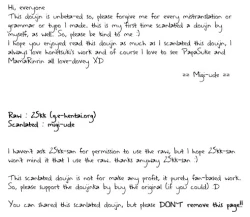 Hi, everyone
This doujin is unbeta-red so, please forgive me for every mistranslation or
grammar or typo I made. this is my first time scanlated a doujin by
myself, as well. So, please be kind to me :)
I hope you enjoyed read this doujin as much as I scanlated this doujin, I
always love work and of course I love to see PapaSuke and
MamaRinrin all love-dovey XD
>> Muj-ude <<
Raw : 25kk (g.e-hentai.org)
Scanlated : muj-ude
I haven't ask 25kk-san for permission to use the raw, but I hope 25kk-san
won't mind it that I use the raw. thanks anyway 25kk-san :)
This scanlated doujin is not for make any profit, it purely fan-based work.
So, please support the doujinka by buy the original (if you could) :D
You can shared this scanlated doujin, but please DON'T remove this page!!